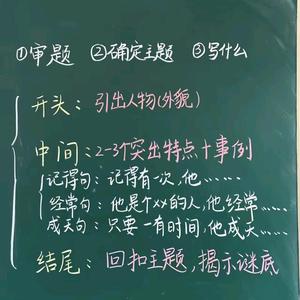 ①审题 ②确定主题 ③写什么
开头：引出人物(外貌)
中间：2-3个突出特点十事例
记得句：记得有一次,他……
经常句：他是个××的人,他经常……
成天句：只要一有时间,他成天……
结尾：回扣主题,揭示谜底